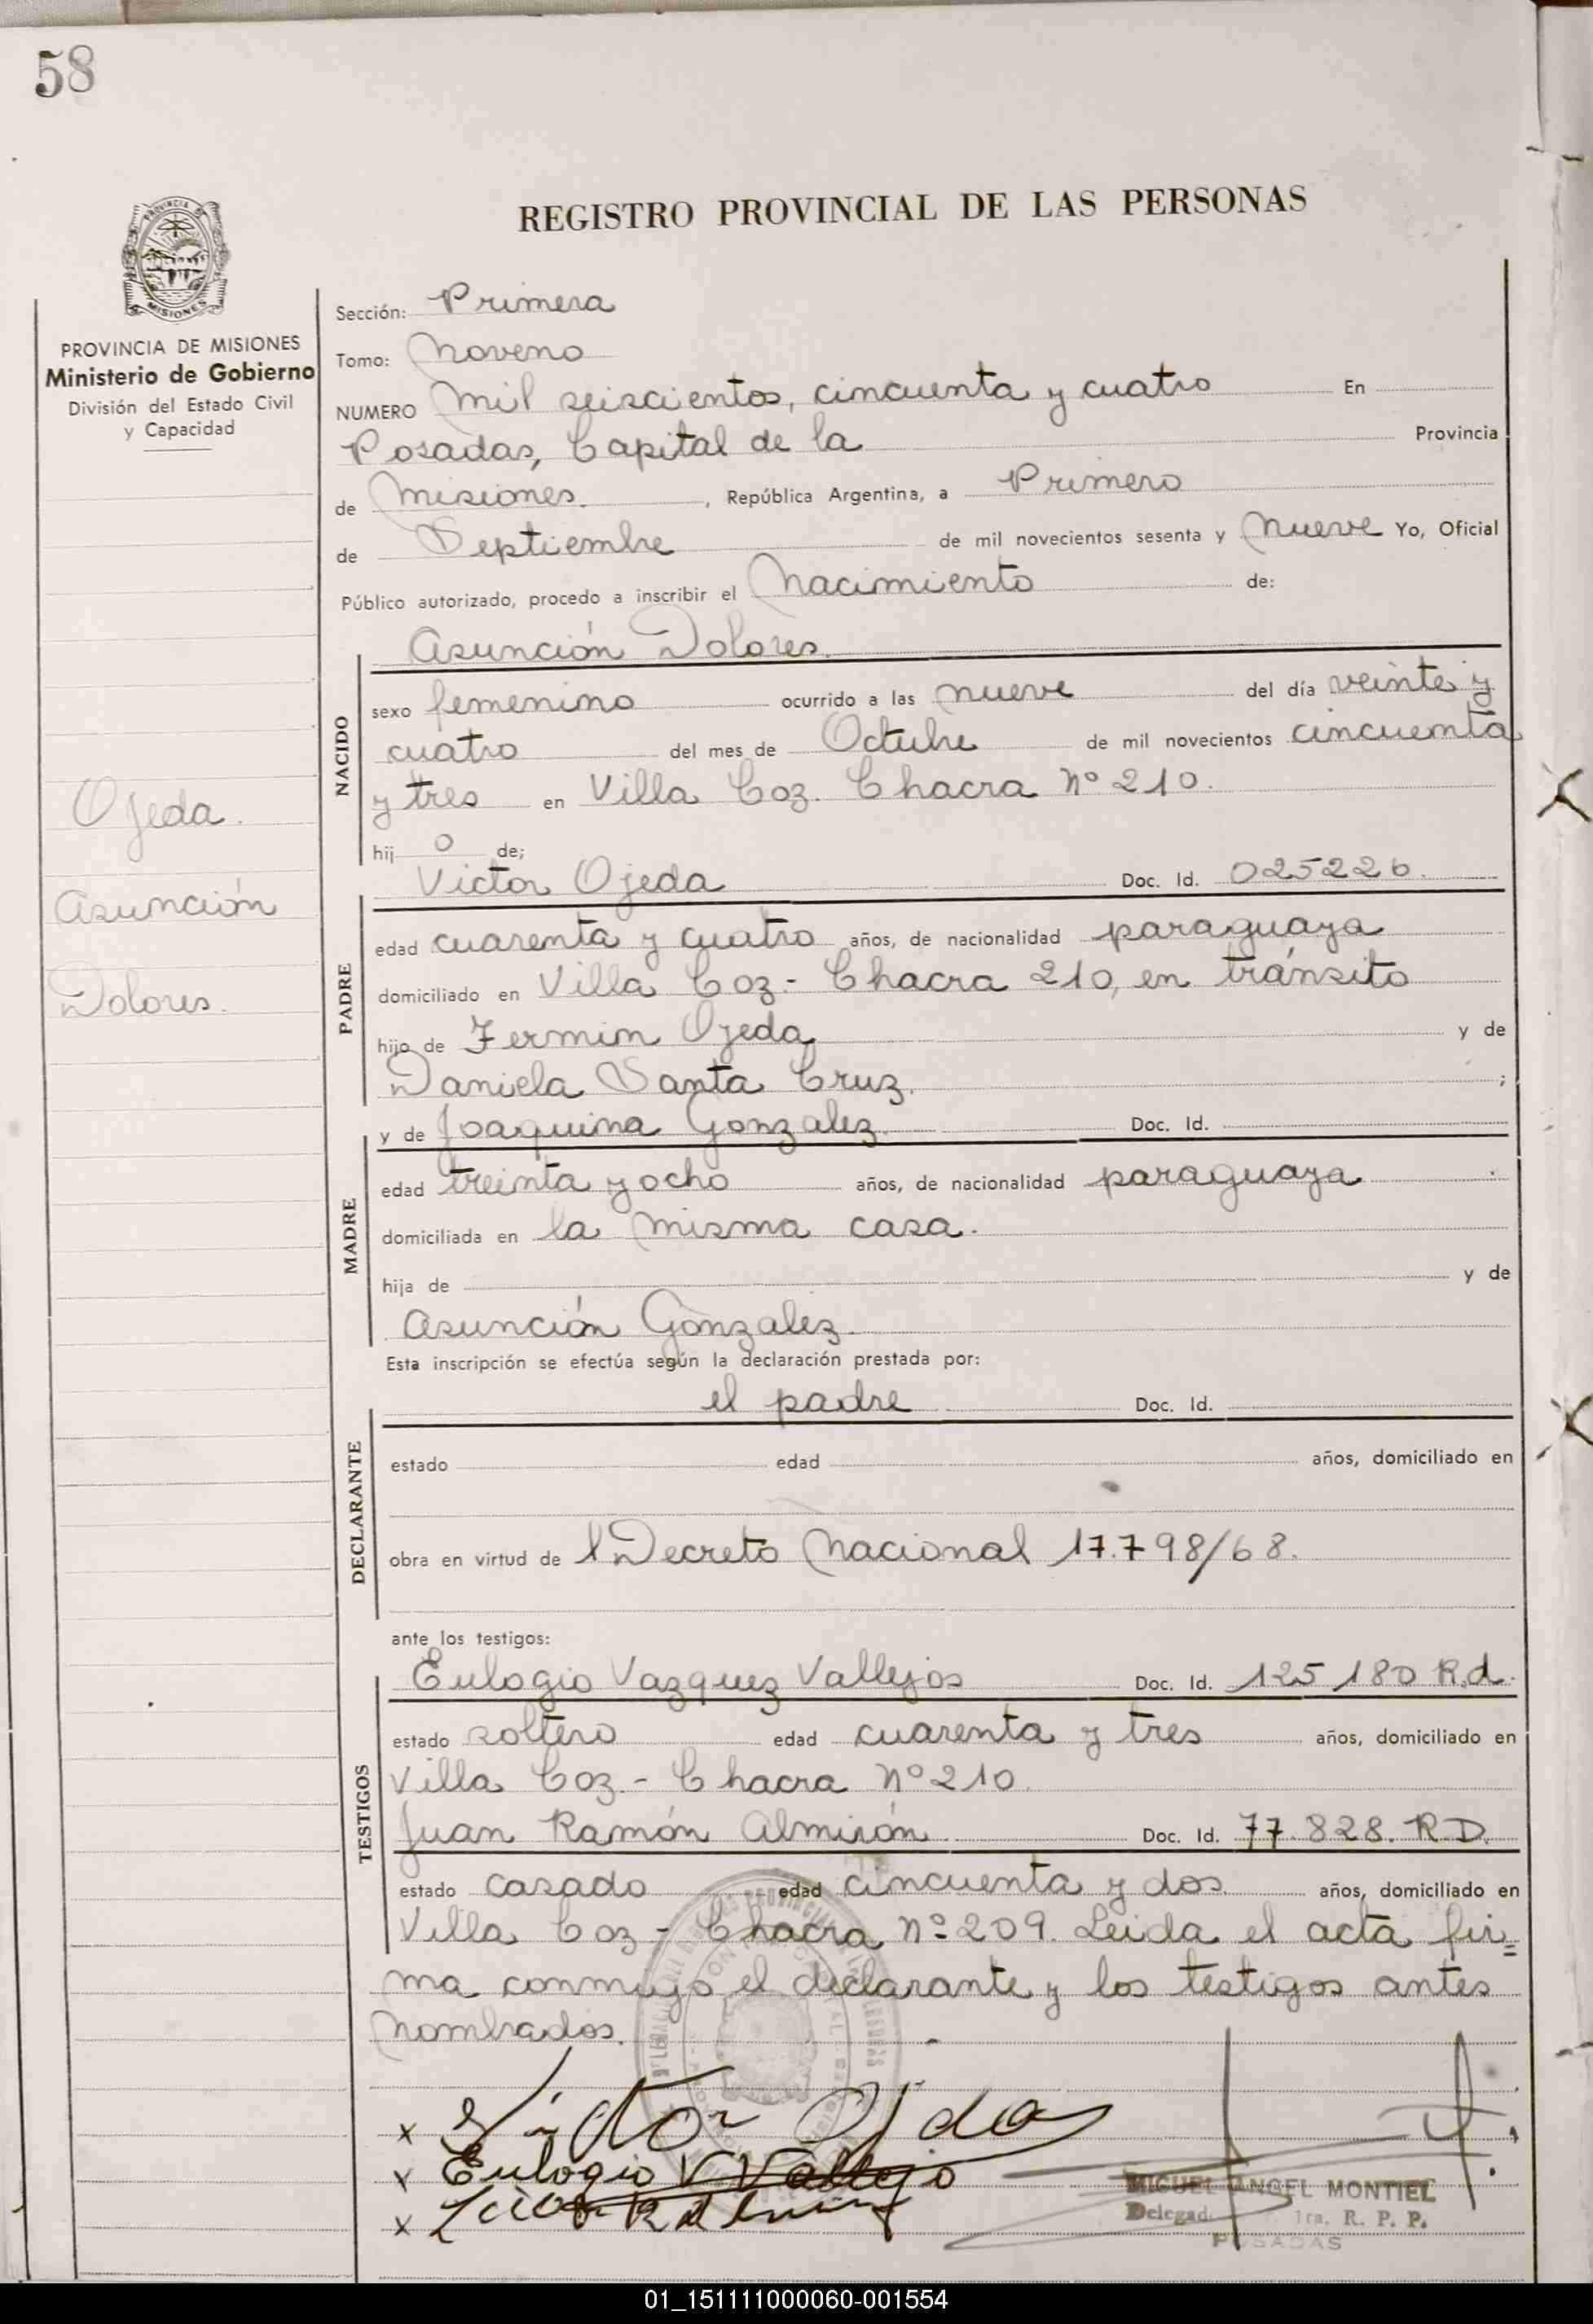 58
REGISTRO PROVINCIAL DE LAS PERSONAS
PROVINCIA DE MISIONES
Ministerio de Gobierno
División del Estado Civil
y Capacidad
Ojeda.
Asunción
Dolores.
Sección: Primera
Tomo: Noveno
NUMERO Mil seiscientos, cincuenta y cuatro En
Posadas, Capital de la Provincia
de Misiones. , República Argentina, a Primero
de Septiembre de mil novecientos sesenta y Nueve Yo, Oficial
Público autorizado, procedo a inscribir el Nacimiento de:
Asunción Dolores.
NACIDO
sexo femenino ocurrido a las nueve del día veinte y
cuatro del mes de Octubre de mil novecientos cincuenta
y tres en Villa Coz. Chacra Nº 210.
hij o de;
Victor Ojeda Doc. Id. 025226.
PADRE
edad cuarenta y cuatro años, de nacionalidad paraguaya
domiciliado en Villa Coz- Chacra 210, en tránsito
hijo de Fermin Ojeda y de
Daniela Santa Cruz. ;
y de Joaquina Gonzalez. Doc. Id.
MADRE
edad treinta y ocho años, de nacionalidad paraguaya
domiciliada en la misma casa.
hija de y de
Asunción Gonzalez.
Esta inscripción se efectúa según la declaración prestada por:
el padre Doc. Id.
DECLARANTE
estado edad años, domiciliado en
obra en virtud de l Decreto Nacional 17.798/68.
ante los testigos:
Eulogio Vazquez Vallejos Doc. Id. 125 180 R.d.
TESTIGOS
estado soltero edad cuarenta y tres años, domiciliado en
Villa Coz.- Chacra Nº 210.
Juan Ramón Almirón Doc. Id. 77.828. R.D.
estado casado edad cincuenta y dos años, domiciliado en
Villa Coz - Chacra Nº 209. Leida el acta fir=
ma conmigo el declarante y los testigos antes
nombrados.
x Victor Ojeda
x Eulogio V Vallejo
x
MIGUEL ANGEL MONTIEL
Delegad 1ra. R. P. P.
POSADAS
01_151111000060-001554